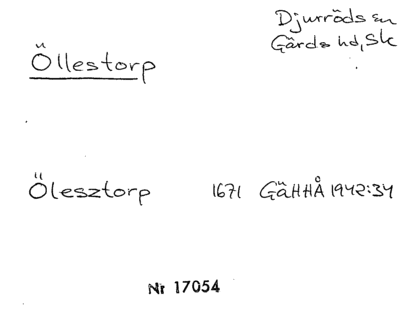 Djurröds sn
Gärds hd, Sk
Öllestorp
Ölesztorp 1671 GäHHÅ 1942:34
Nr 17054